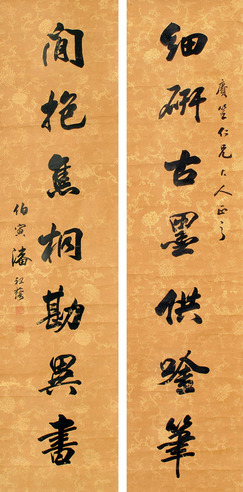 賡笙仁兄大人正之
細研古墨供唫筆
閒抱焦桐勘異書
伯寅潘祖蔭